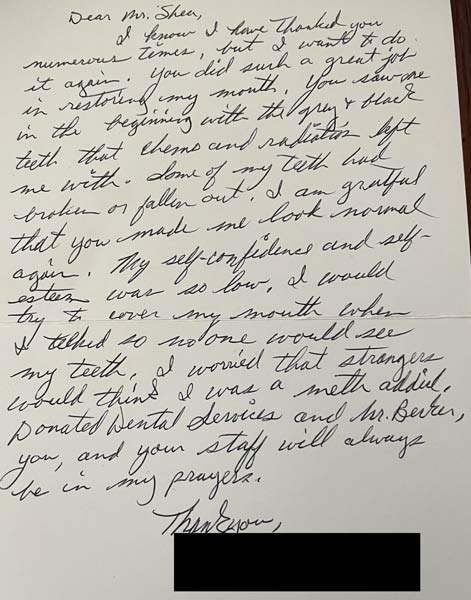 Dear Mr. Shea,
I know I have thanked you
numerous times, but I want to do
it again. You did such a great job
in restoring my mouth. You saw me
in the beginning with the grey & black
teeth that chemo and radiation left
me with. Some of my teeth had
broken or fallen out. I am grateful
that you made me look normal
again. My self-confidence and self-
esteem was so low. I would
try to cover my mouth when
I talked so no one would see
my teeth. I worried that strangers
would think I was a meth addict.
Donated Dental Services and Mr.
you, and your staff will always
be in my prayers.
Thank you,